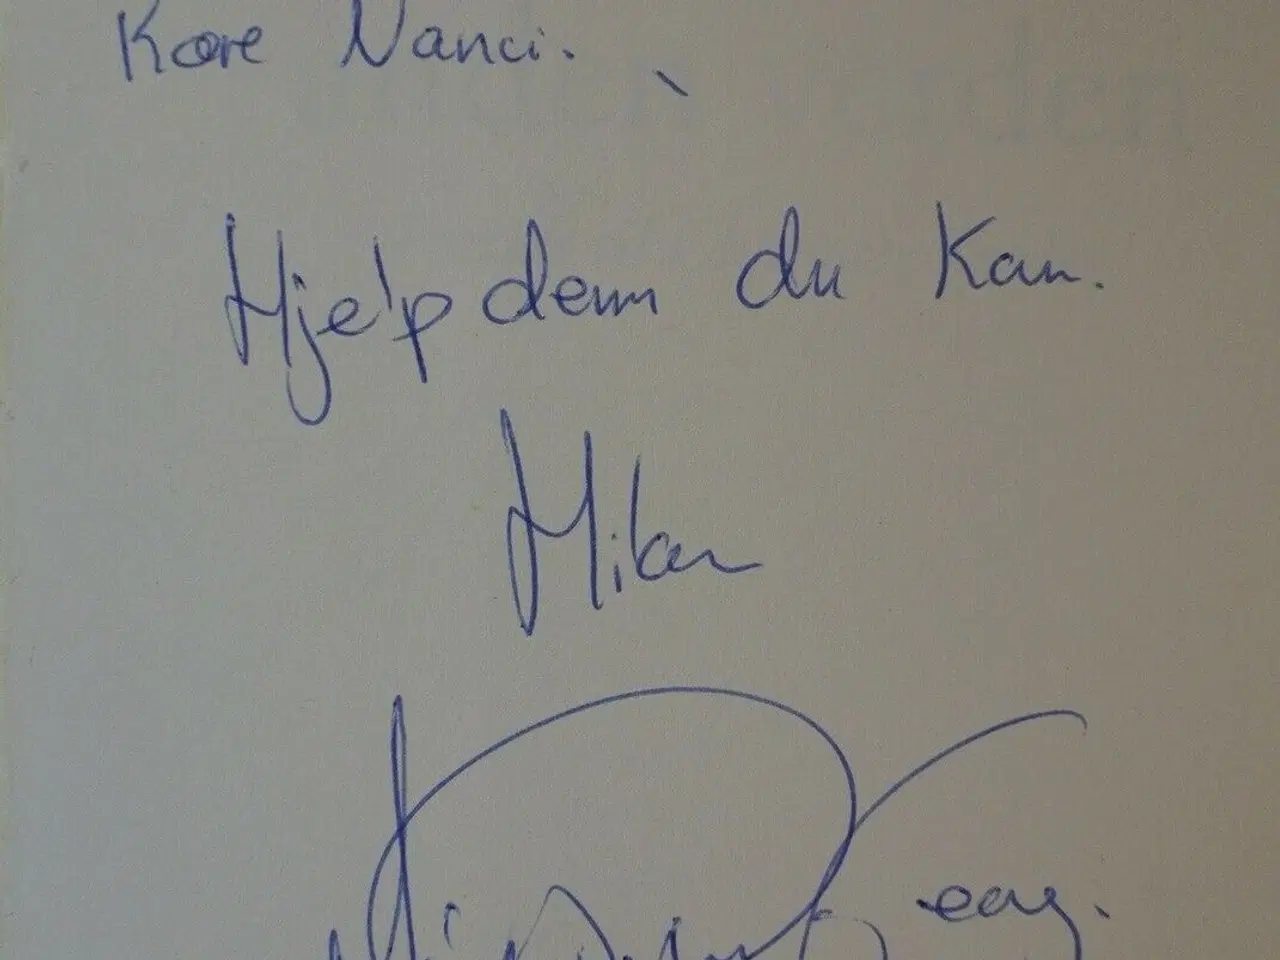 Kære Nanci.
Hjelp dem du Kan.
Milan